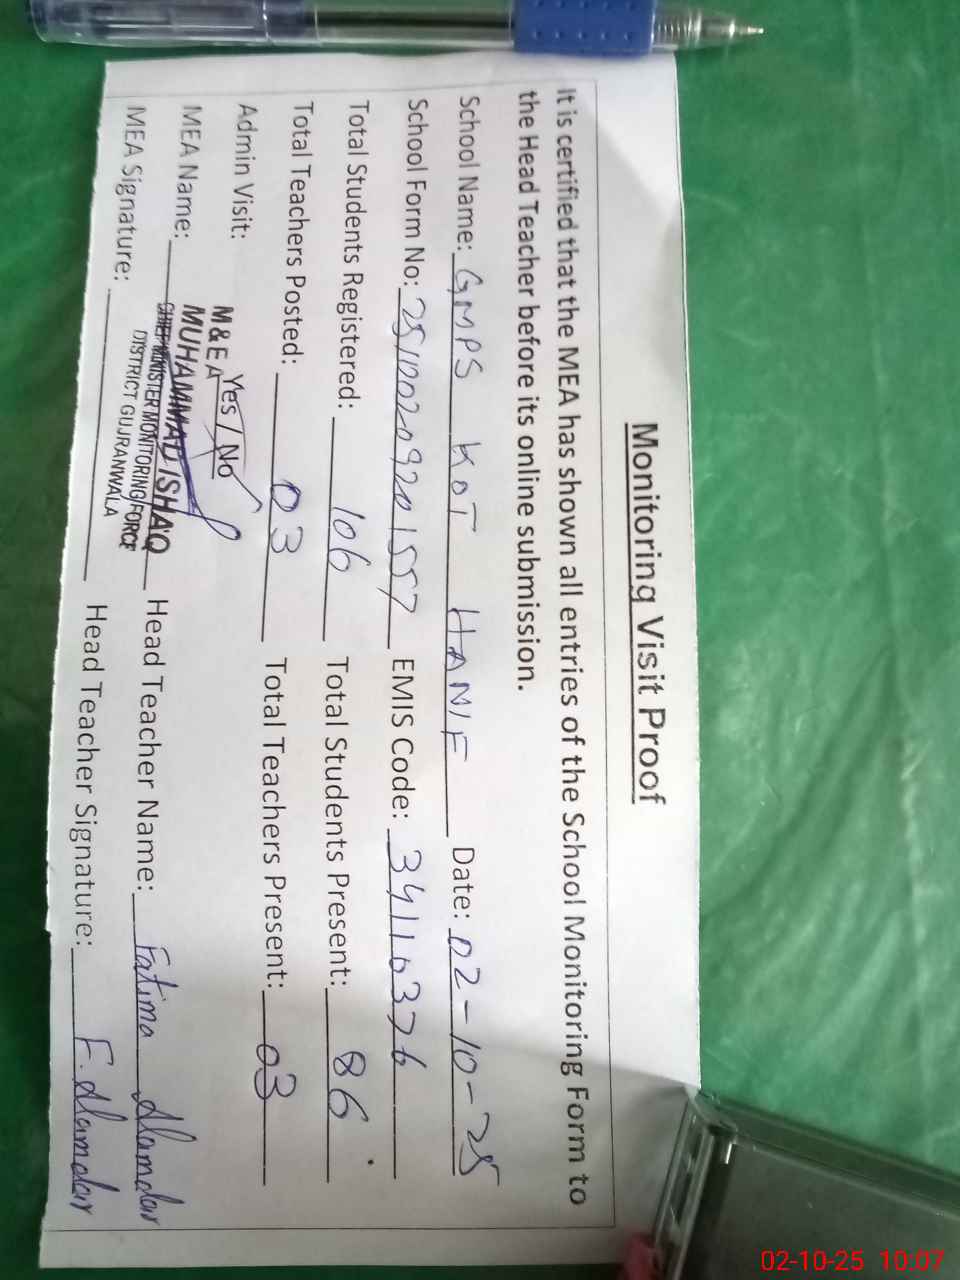 Monitoring Visit Proof
It is certified that the MEA has shown all entries of the School Monitoring Form to
the Head Teacher before its online submission.
School Name: GMPS KOT HANIF Date: 02-10-25
School Form No: 25100209201557 EMIS Code: 34116376
Total Students Registered: 106 Total Students Present: 86
Total Teachers Posted: 03 Total Teachers Present: 03
Admin Visit: Yes / No
M & E A
MEA Name: MUHAMMAD ISHAQ Head Teacher Name: Fatima Alamdar
CHIEF MINISTER MONITORING FORCE
DISTRICT GUJRANWALA
MEA Signature: Head Teacher Signature: F. Alamdar
02-10-25 10:07